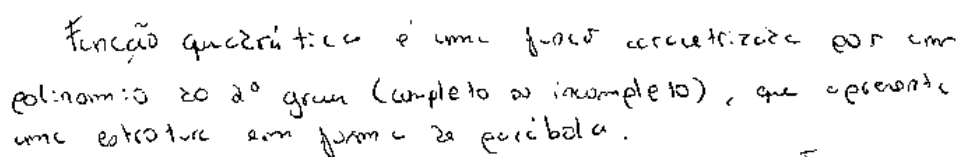 Função quadrática é uma função caracetrizada por um
polinomio do 2º grau (completo ou incompleto), que apresenta
uma estrotura em forma de parábola.